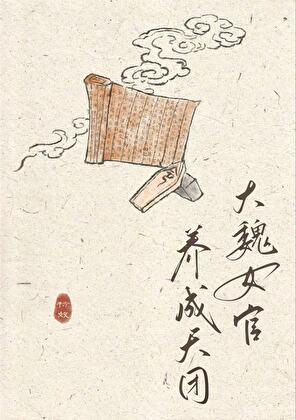 大魏女官
养成天团